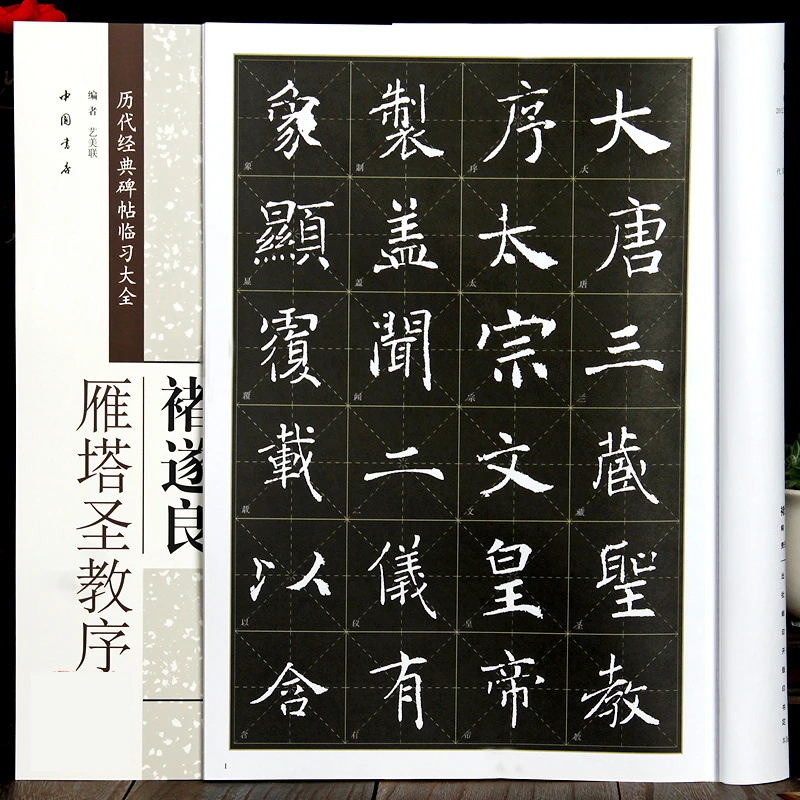 历代经典碑帖临习大全
编者 艺美联
中国书店
褚遂良
雁塔圣教序
大唐三藏聖教
序太宗文皇帝
製盖聞二儀有
象顯覆載以含
1